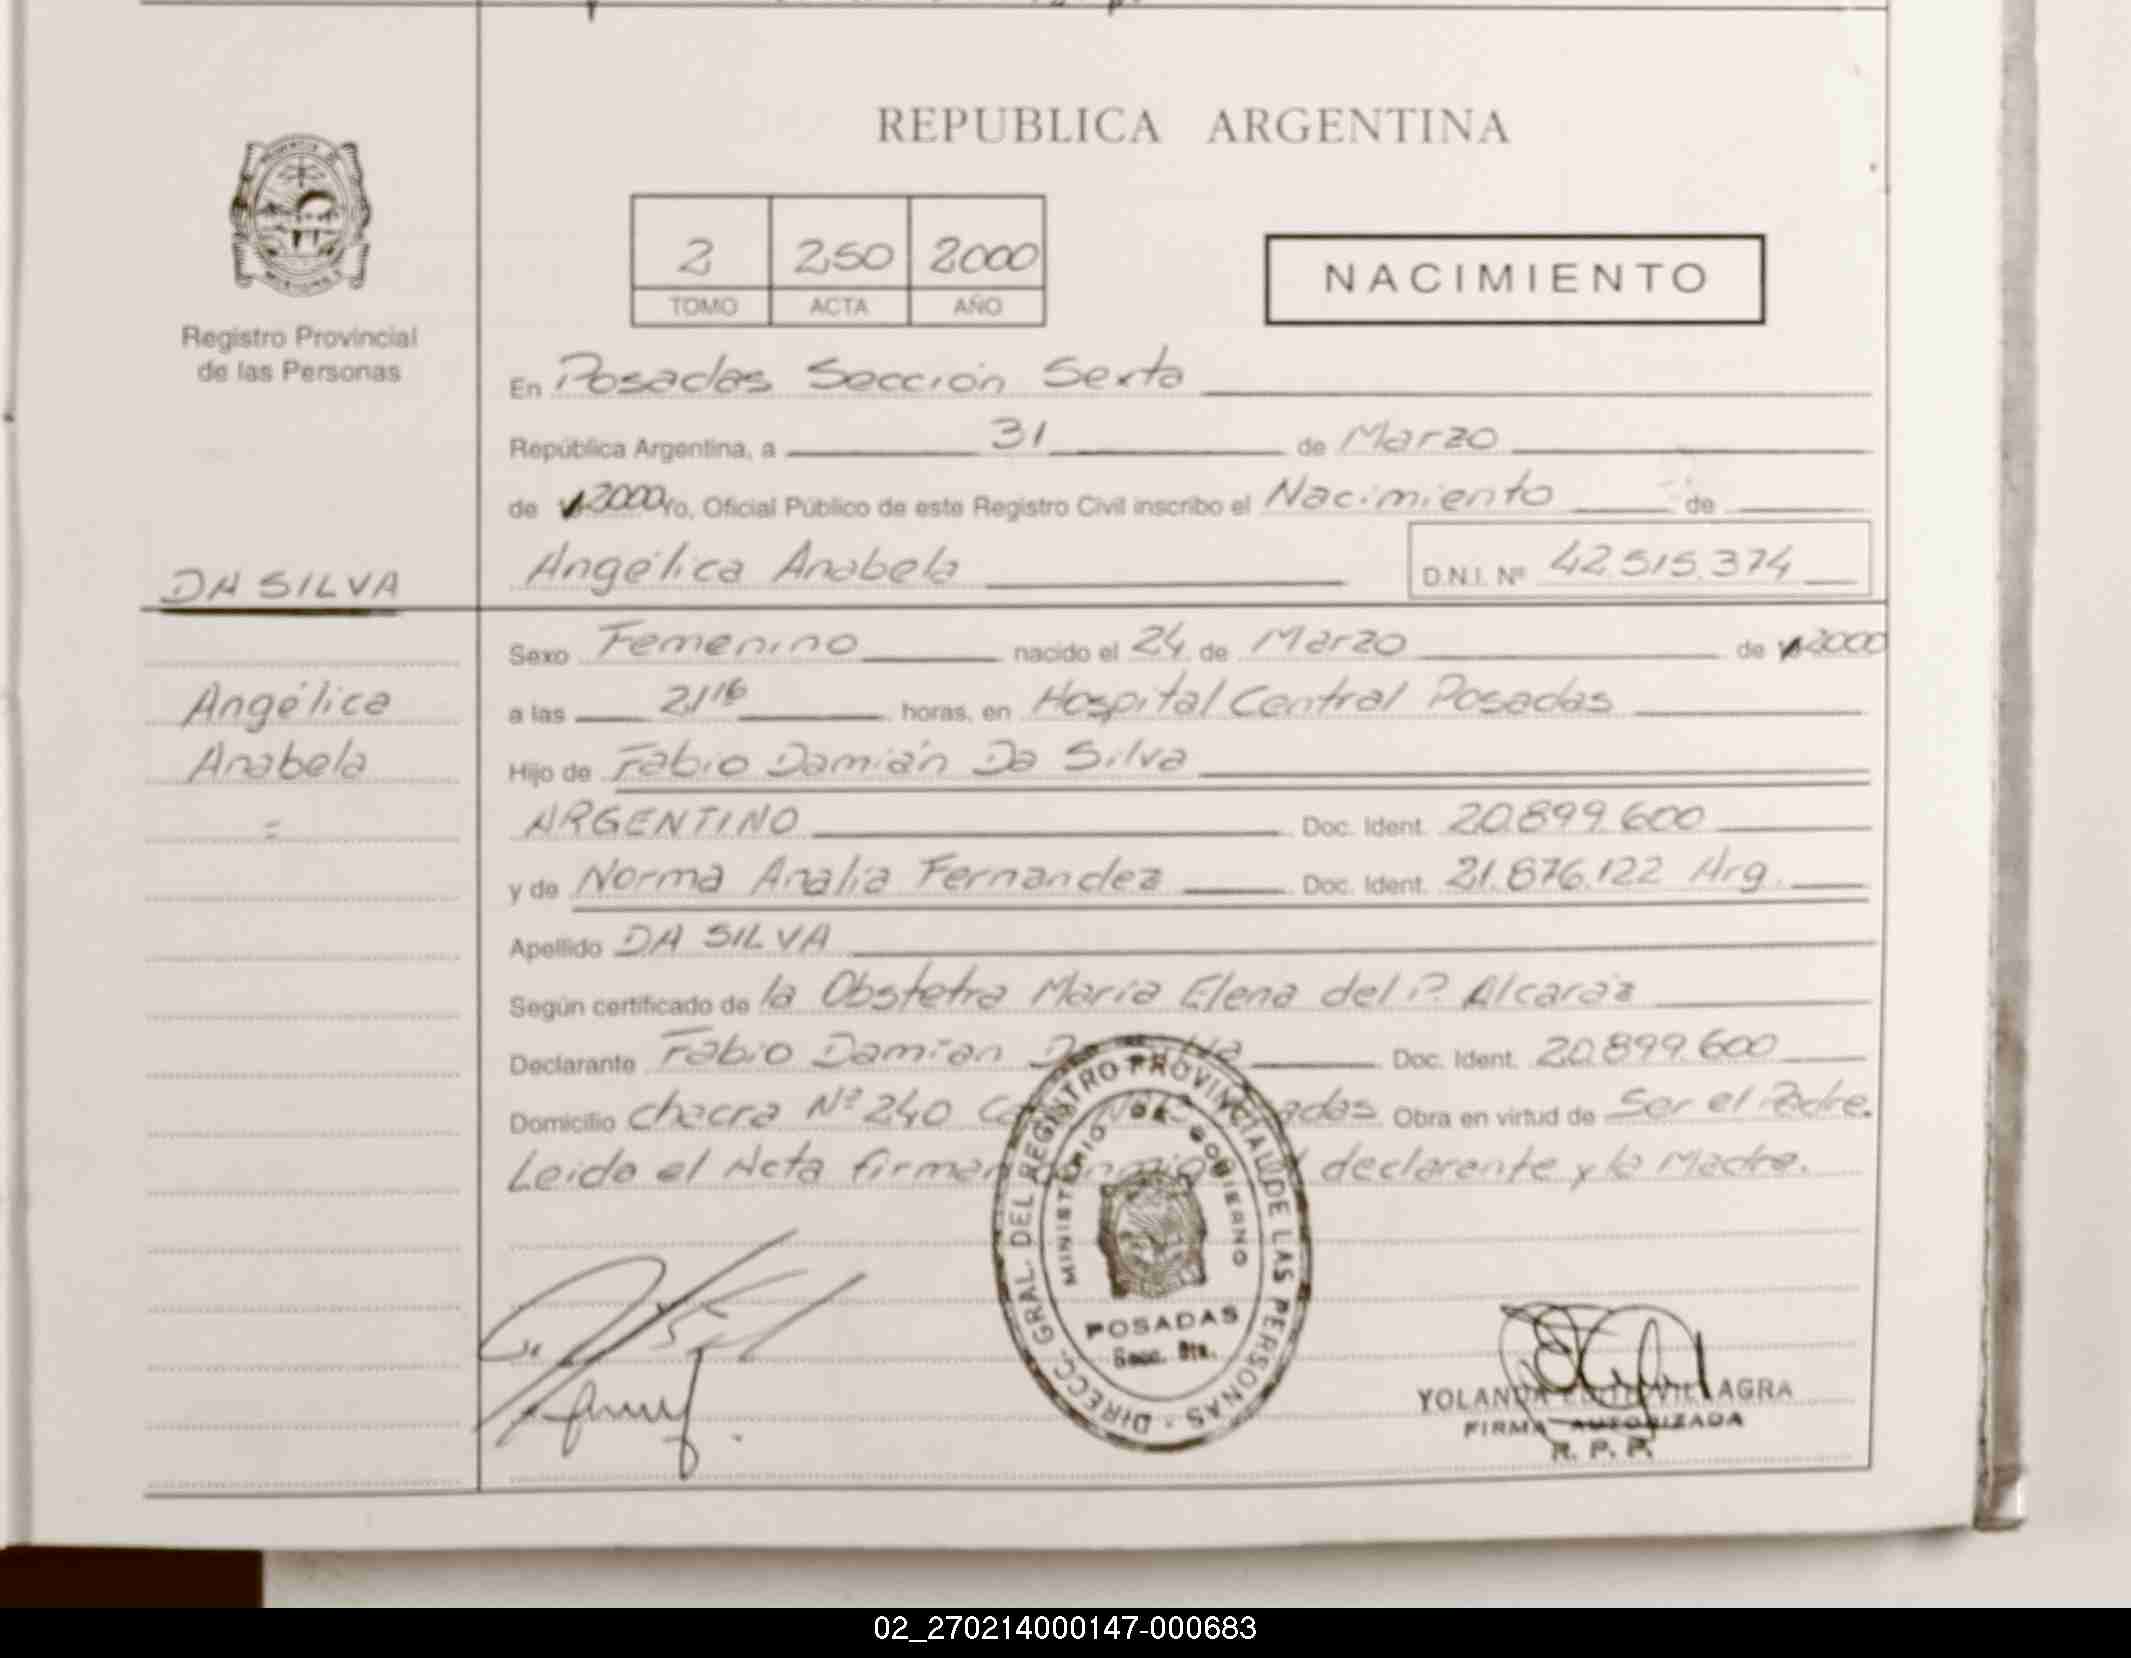 REPUBLICA ARGENTINA
2 250 2000
TOMO ACTA AÑO
NACIMIENTO
Registro Provincial
de las Personas
En Posadas Sección Sexta
República Argentina, a 31 de Marzo
de 2000 Yo, Oficial Público de este Registro Civil inscribo el Nacimiento de
Angélica Anabela D.N.I. Nº 42.515.374
DA SILVA
Angélica
Anabela
=
Sexo Femenino nacido el 24 de Marzo de 2000
a las 21 16 horas, en Hospital Central Posadas
Hijo de Fabio Damián Da Silva
ARGENTINO Doc. Ident. 20.899.600
y de Norma Analia Fernandez Doc. Ident. 21.876.122 Arg.
Apellido DA SILVA
Según certificado de la Obstetra Maria Elena del P. Alcaraz
Declarante Fabio Damian Doc. Ident. 20.899.600
Domicilio chacra Nº 240 Obra en virtud de Ser el Padre.
Leida el Acta declarante y la Madre.
DIRECC. GRAL. DEL REGISTRO PROVINCIAL DE LAS PERSONAS
MINISTERIO DE GOBIERNO
POSADAS
Secc. 6ta.
YOLANDA VILLAGRA
FIRMA AUTORIZADA
R. P. P.
02_270214000147-000683